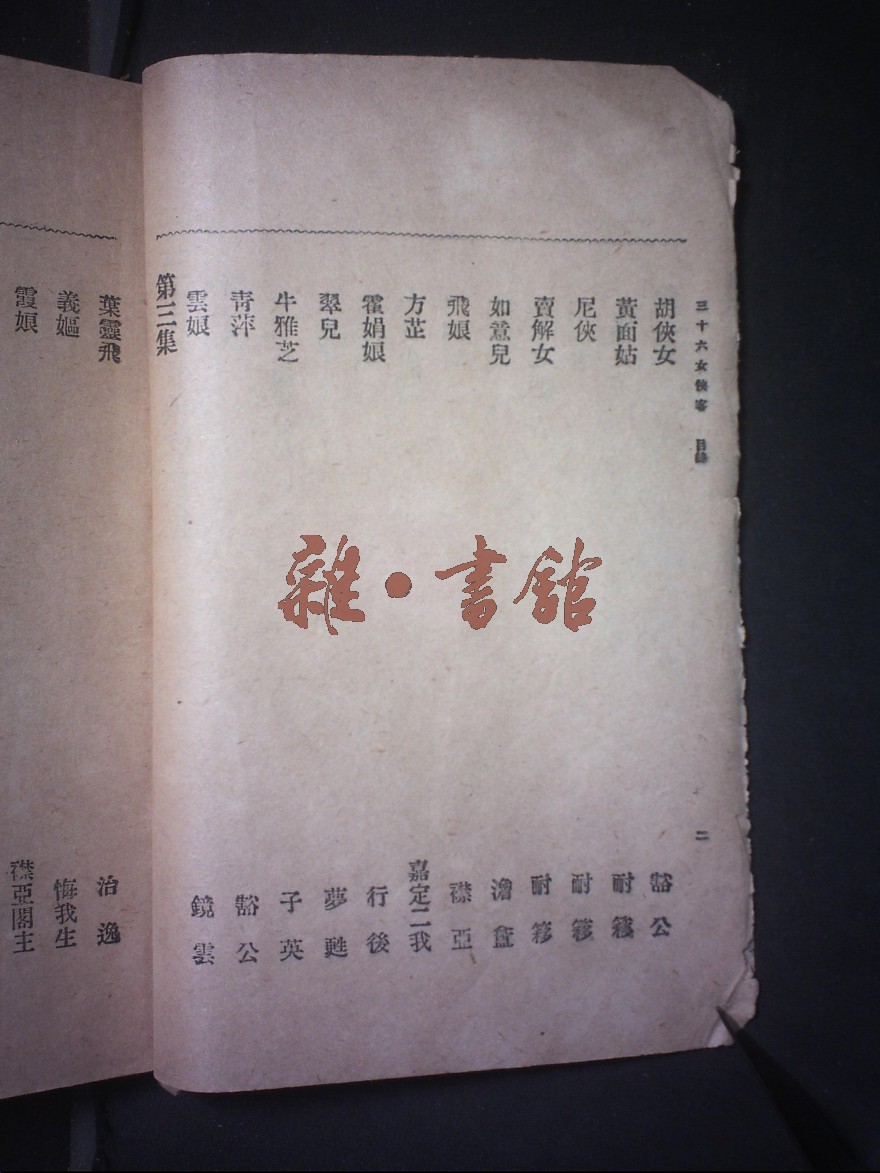 三十六女俠客 目錄 二
胡俠女 豁公
黃面姑 耐簃
尼俠 耐簃
賣解女 耐簃
如意兒 澹盦
飛娘 襟亞
方芷 嘉定二我
霍娟娘 行後
翠兒 夢甦
牛雅芝 子英
青萍 豁公
雲娘 鏡雲
第三集
葉靈飛 治逸
義嫗 悔我生
霞娘 襟亞閣主
雜•書館